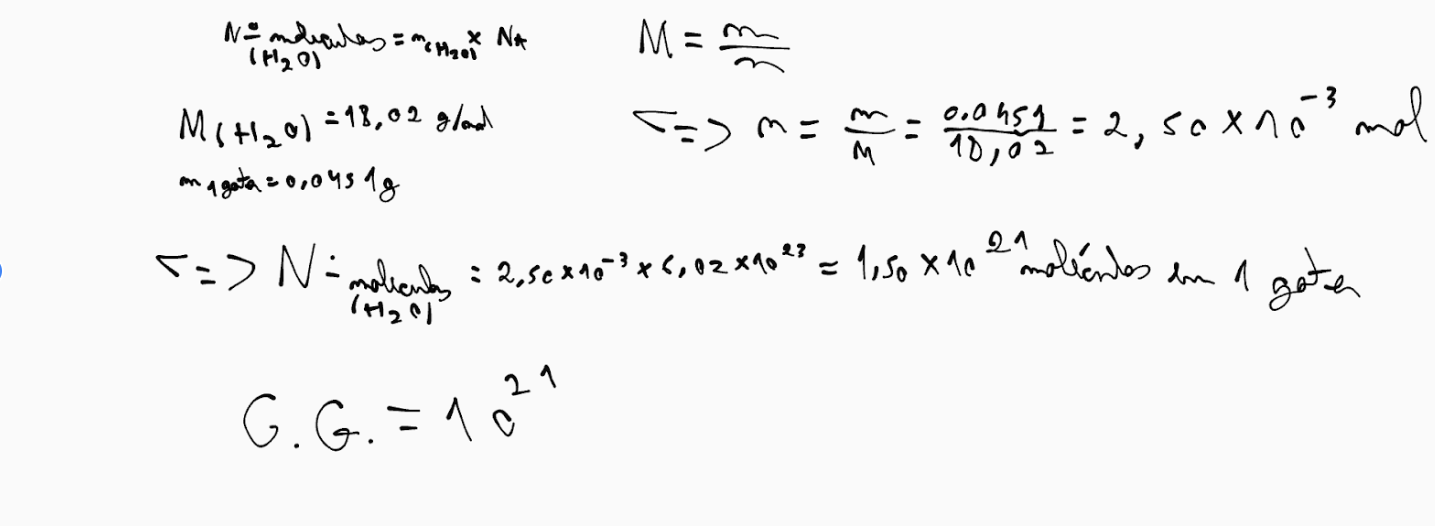 Nº moléculas (H₂O) = n(H₂O) × NA
M = m/n
M(H₂O) = 18,02 g/mol
<=> n = m/M = 0.0451/18,02 = 2,50 × 10⁻³ mol
m 1 gota = 0,0451g
<=> Nº moléculas (H₂O) = 2,50 × 10⁻³ × 6,02 × 10²³ = 1,50 × 10²¹ moléculas em 1 gota
G.G. = 10²¹